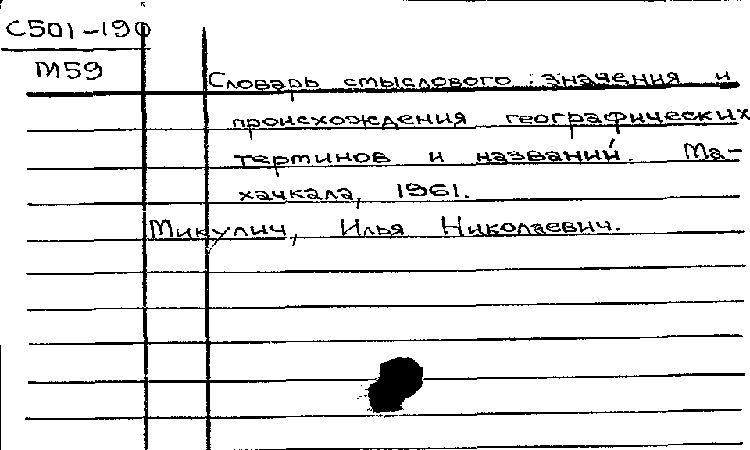 С501-190
М59
Словарь смыслового значения и
происхождения географических
терминов и названий. Ма-
хачкала, 1961.
Микулич, Илья Николаевич.